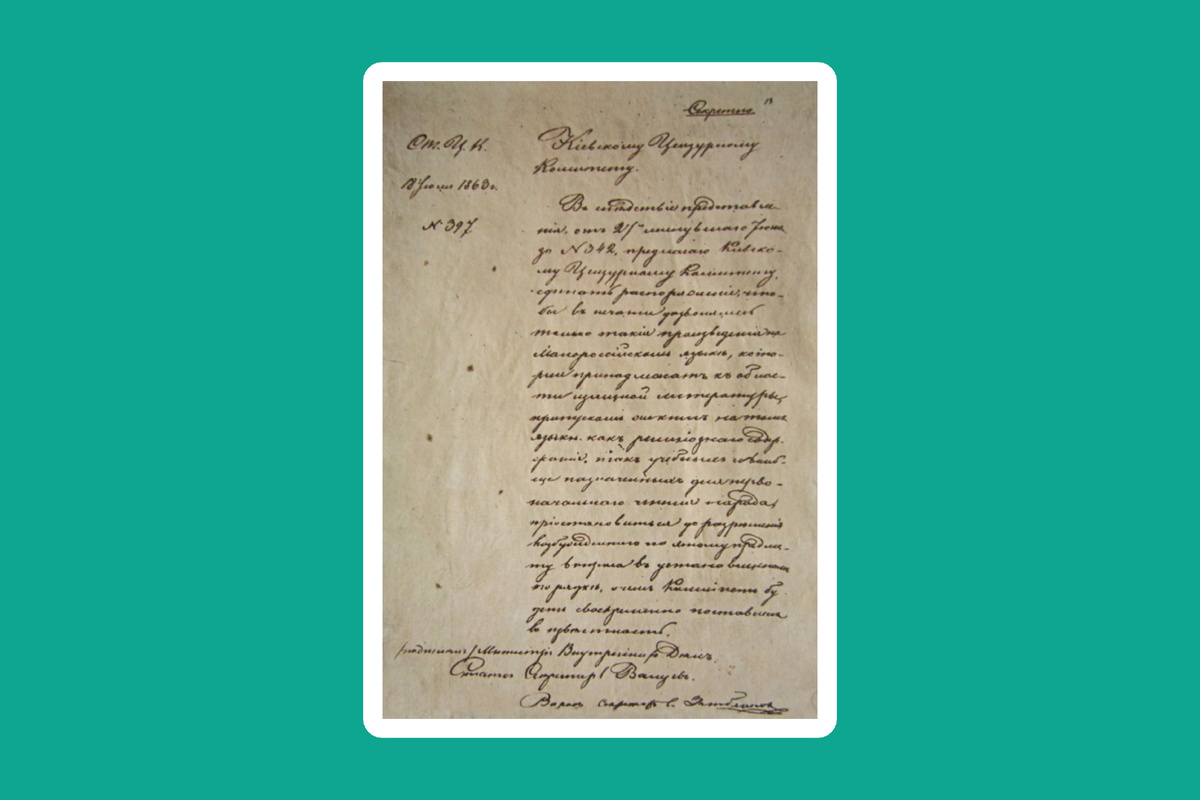 Секретно
От. Ц. К.
Кіевскому Цензурному
Комитету.
18 Іюля 1863 г.
N 397
Въ слѣдствіе представле-
нія, отъ 27 минувшаго Іюня
за N 342, предлагаю Кіевско-
му Цензурному Комитету,
сдѣлать распоряженіе, что-
бы въ печати дозволялись
только такія произведенія на
Малороссійскомъ языкѣ, кото-
рыя принадлежатъ къ облас-
ти изящной литературы,
пропускъ же книгъ на томъ
языкѣ, какъ религіознаго содер-
жанія, такъ учебныхъ и вооб-
ще назначенныхъ для перво-
начальнаго чтенія народа,
пріостановиться до разрѣшенія
возбужденнаго по этому предме-
ту вопроса въ установленномъ
порядкѣ, о чемъ Комитетъ бу-
детъ своевременно поставленъ
въ извѣстность.
/подписалъ/ Министръ Внутреннихъ Дѣлъ,
Статсъ Секретарь Валуевъ.
Вѣрно: секретарь